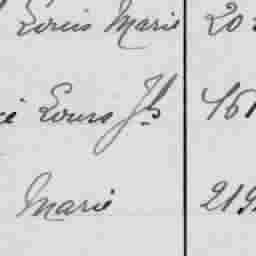 Louis Marie 20
Louis Jh 461
Marie 219